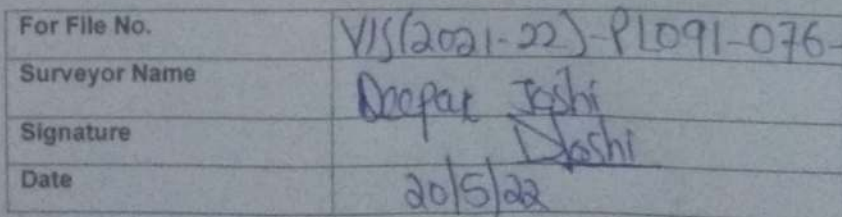 For File No. VIS(2021-22)-PL091-076-
Surveyor Name Deepak Joshi
Signature DJoshi
Date 20/5/22